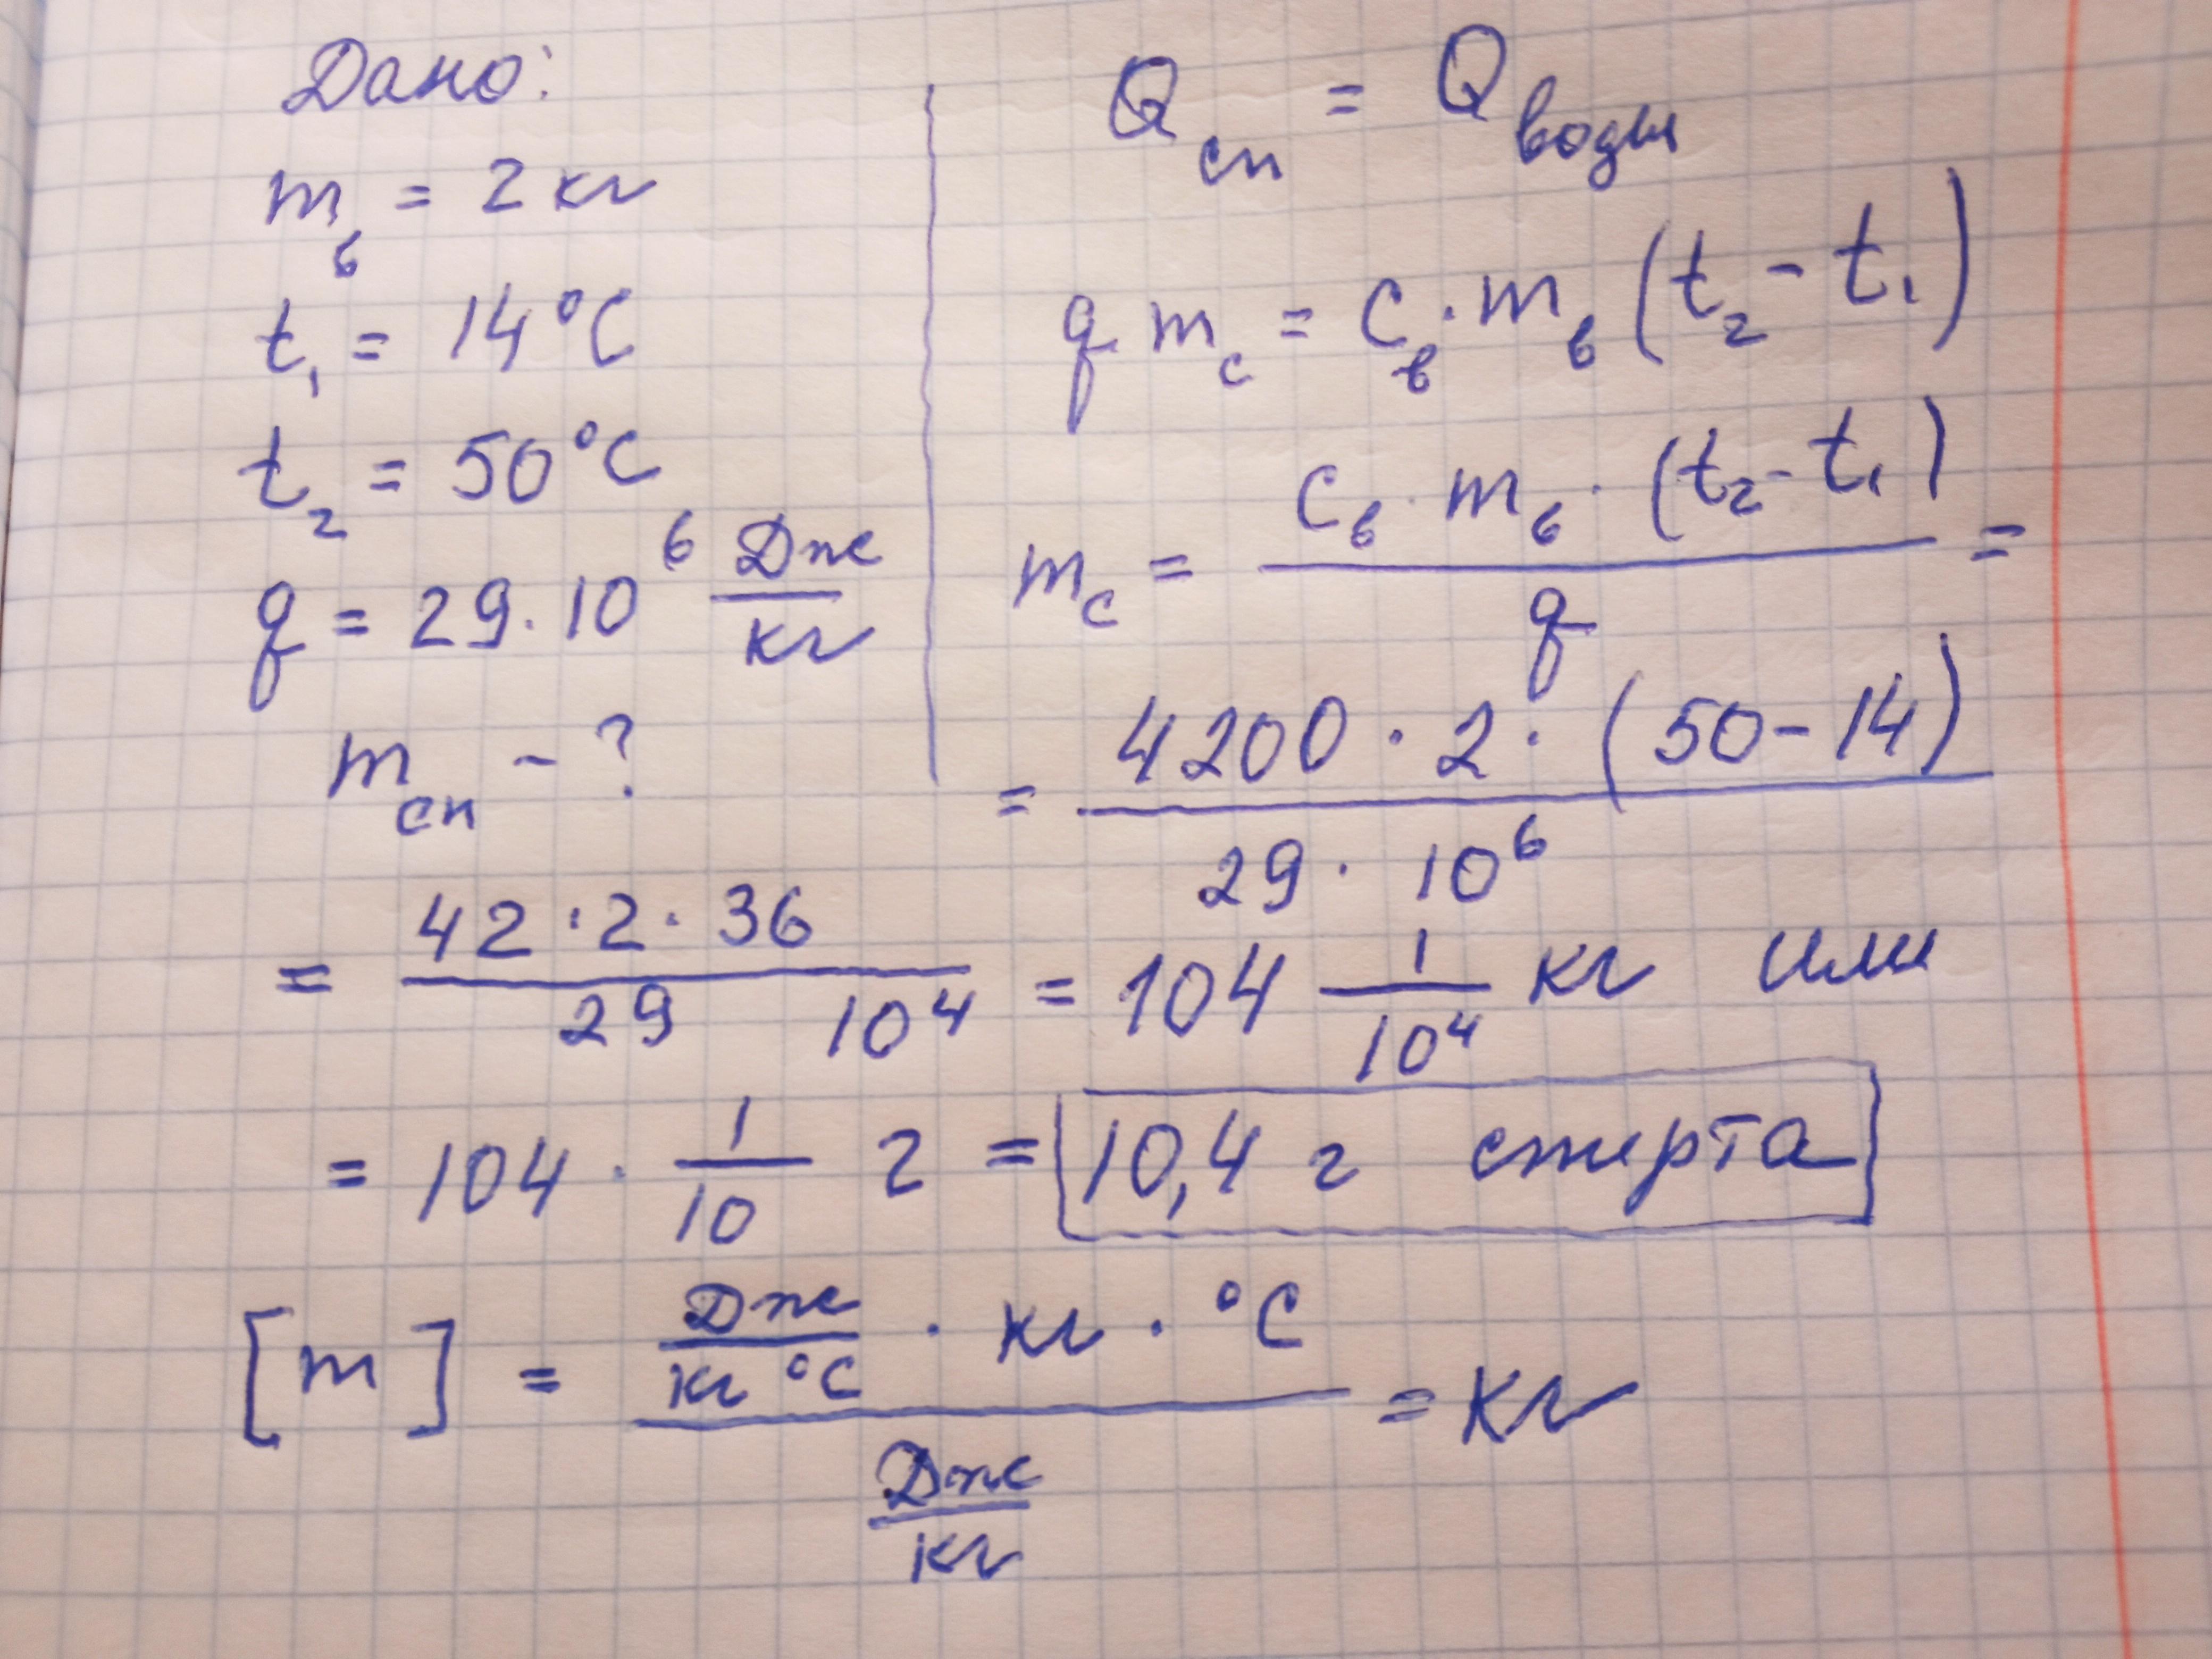 Дано:
m_в = 2 кг
t_1 = 14 °C
t_2 = 50 °C
q = 29 · 10^6 Дж/кг
m_сп - ?
Q_сп = Q_воды
q m_с = C_в · m_в (t_2 - t_1)
m_с = C_в · m_в · (t_2 - t_1) / q =
= 4200 · 2 · (50 - 14) / 29 · 10^6
= 42 · 2 · 36 / 29 10^4 = 104 1/10^4 кг или
= 104 · 1/10 г = 10,4 г спирта
[m] = Дж/кг °C · кг · °C / Дж/кг = кг